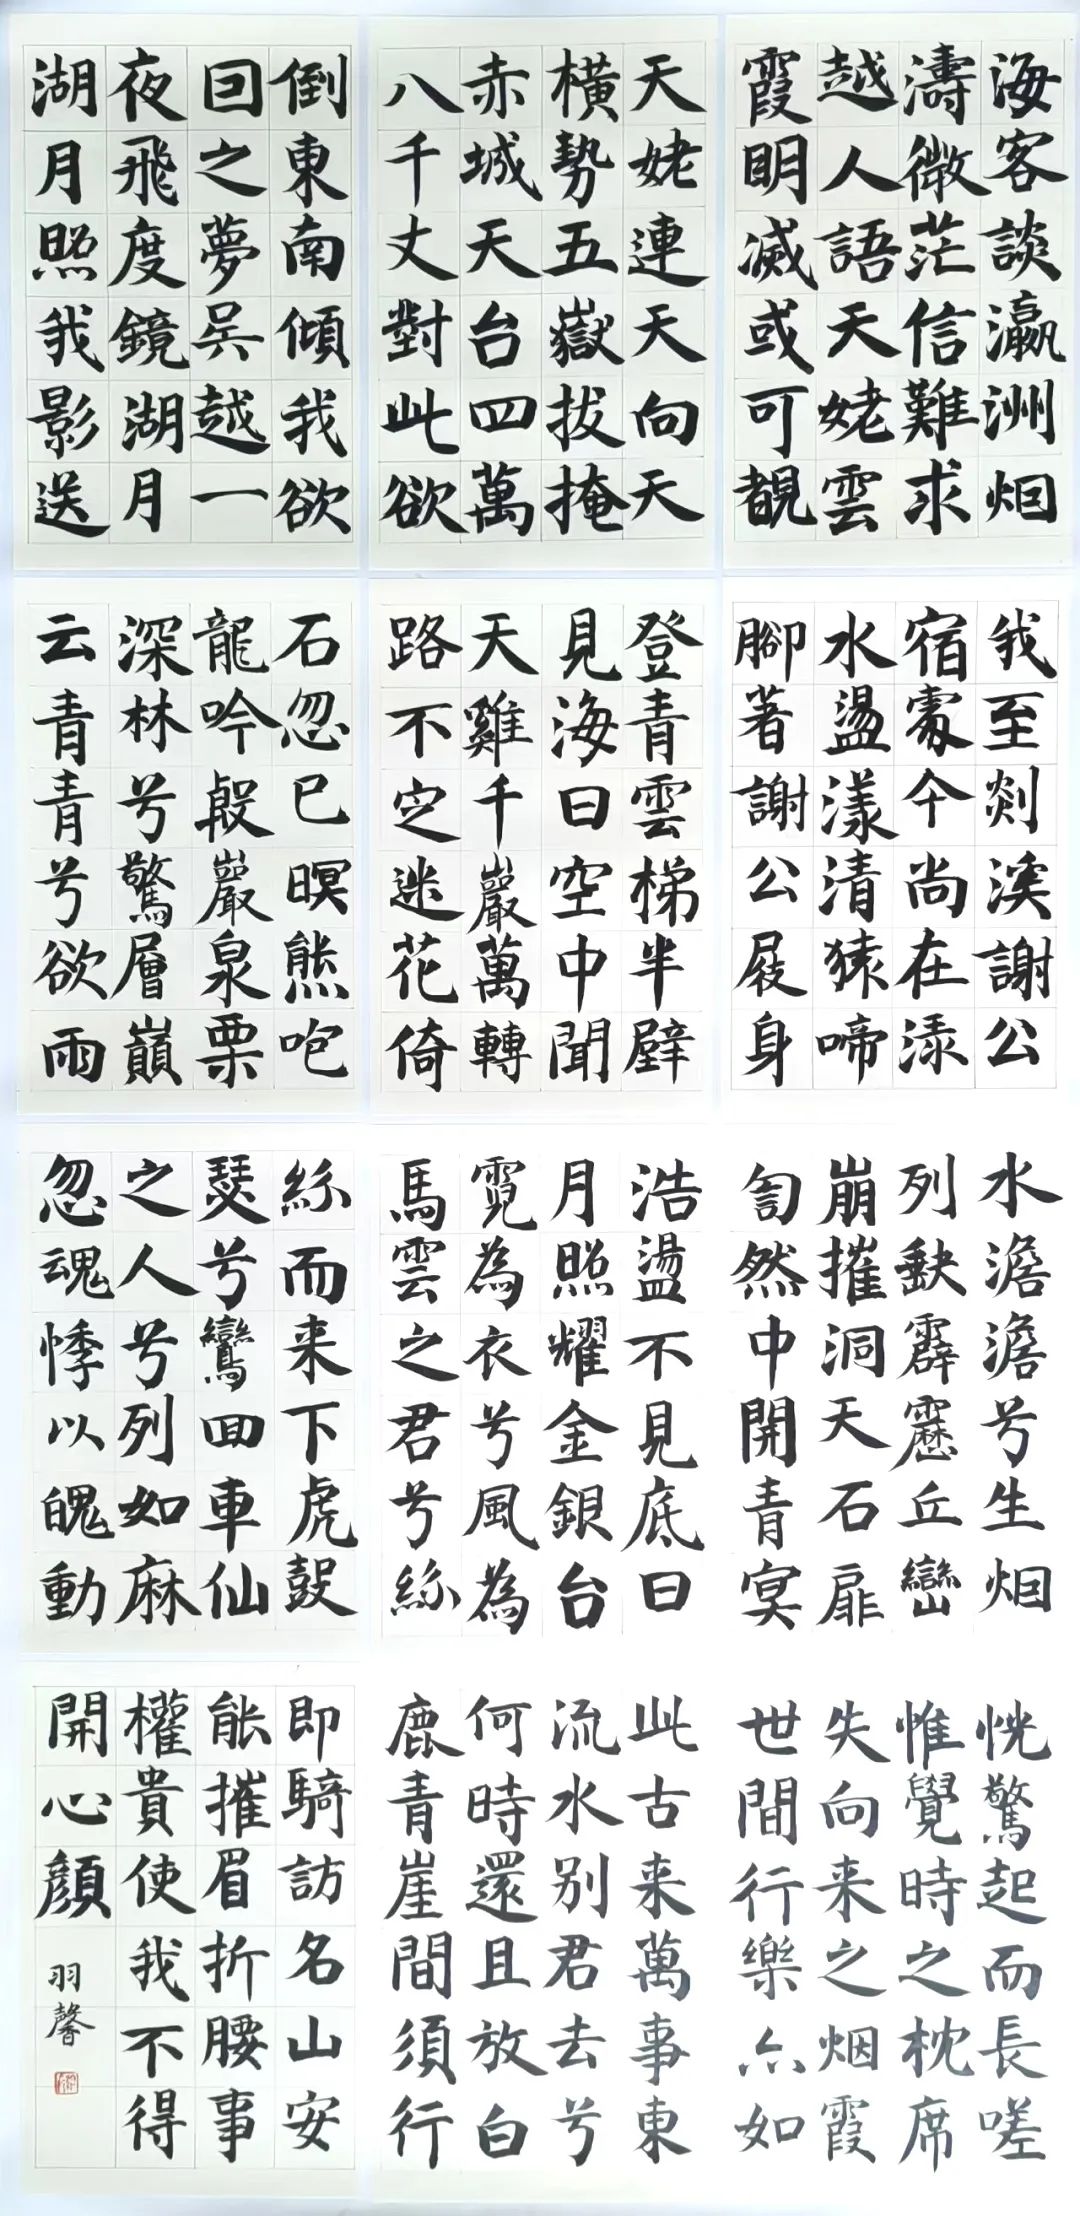 海客談瀛洲烟
濤微茫信難求
越人語天姥雲
霞明滅或可覩
天姥連天向天
橫勢五嶽拔掩
赤城天台四萬
八千丈對此欲
倒東南傾我欲
回之夢吳越一
夜飛度鏡湖月
湖月照我影送
我至剡溪謝公
宿處今尚在渌
水盪漾清猿啼
腳著謝公屐身
登青雲梯半壁
見海日空中聞
天雞千巖萬轉
路不定迷花倚
石忽已暝熊咆
龍吟殷巖泉栗
深林兮驚層巔
云青青兮欲雨
水澹澹兮生烟
列缺霹靂丘巒
崩摧洞天石扉
訇然中開青冥
浩盪不見底日
月照耀金銀台
霓為衣兮風為
馬雲之君兮絲
絲而来下虎鼓
瑟兮鸞回車仙
之人兮列如麻
忽魂悸以魄動
恍驚起而長嗟
惟覺時之枕席
失向来之烟霞
世間行樂亦如
此古来萬事東
流水别君去兮
何時還且放白
鹿青崖間須行
即騎訪名山安
能摧眉折腰事
權貴使我不得
開心顔
羽馨